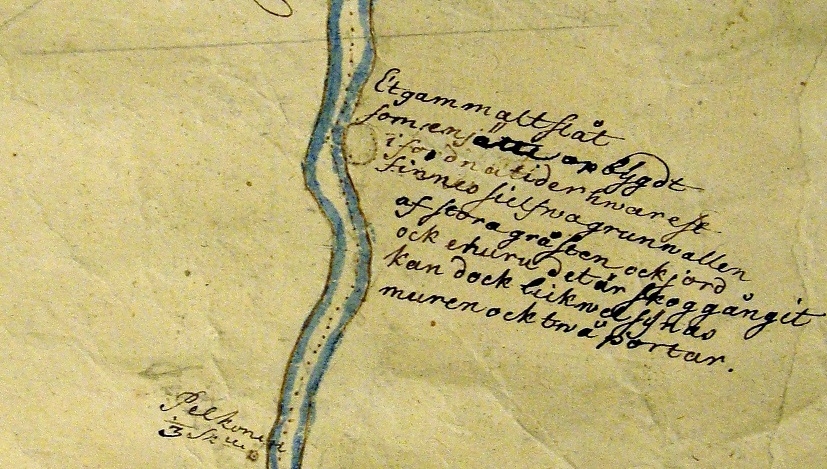 Etgammaltslåt
somenjätte opbÿgdt
ifordnatiderhwarest
finnes sielfwagrunwallen
af storagråsten ockjord
ock ehuru det är skoggångit
kan dock liikwel sÿnas
murenocktwå portar.
Pelkonen